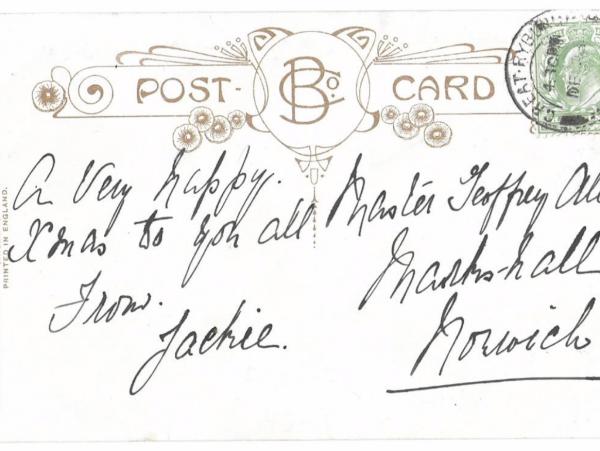 POST-CARD
B Co.
PRINTED IN ENGLAND.
A Very happy.
Xmas to you all
From.
Jackie.
Master Geoffrey
Markshall
Norwich